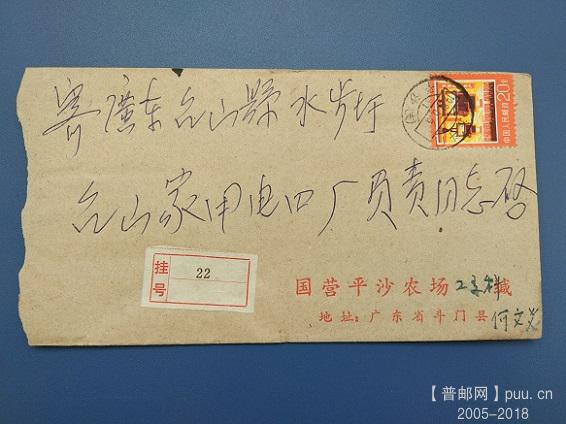 寄廣东台山縣水步圩
20分
中国人民邮政
台山家用电口厂負责同志啓
挂号
22
国营平沙农场工交科缄
地址：广东省斗门县何文
【普邮网】puu.cn
2005-2018